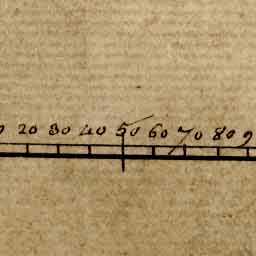 0 20 30 40 50 60 70 80 9